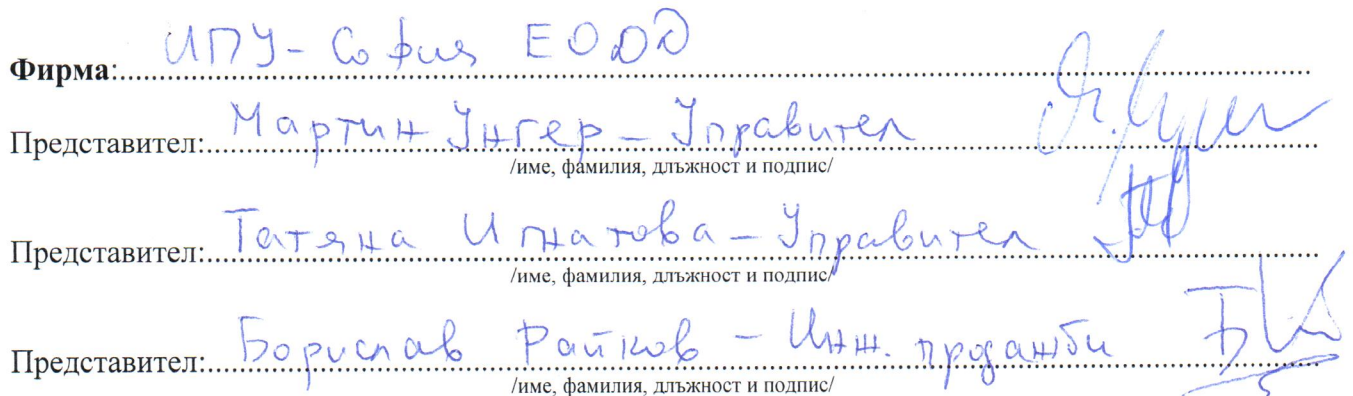 Фирма: ИПУ-София ЕООД
Представител: Мартин Унгер – Управител
/име, фамилия, длъжност и подпис/
Представител: Татяна Игнатова – Управител
/име, фамилия, длъжност и подпис/
Представител: Борислав Райков – Инж. продажби
/име, фамилия, длъжност и подпис/